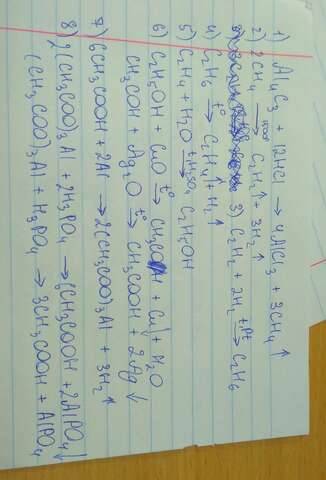 1) Al₄C₃ + 12HCl → 4AlCl₃ + 3CH₄↑
2) 2CH₄ 1500° → C₂H₂↑ + 3H₂↑
3) C₂H₂ + 2H₂ t,Pt → C₂H₆
4) C₂H₆ t° → C₂H₄↑ + H₂↑
5) C₂H₄ + H₂O t,H₂SO₄ → C₂H₅OH
6) C₂H₅OH + CuO t° → CH₃COH + Cu↓ + H₂O
CH₃COH + Ag₂O t° → CH₃COOH + 2Ag↓
7) 6CH₃COOH + 2Al → 2(CH₃COO)₃Al + 3H₂↑
8) 2(CH₃COO)₃Al + 2H₃PO₄ → 6CH₃COOH + 2AlPO₄↓
(CH₃COO)₃Al + H₃PO₄ → 3CH₃COOH + AlPO₄